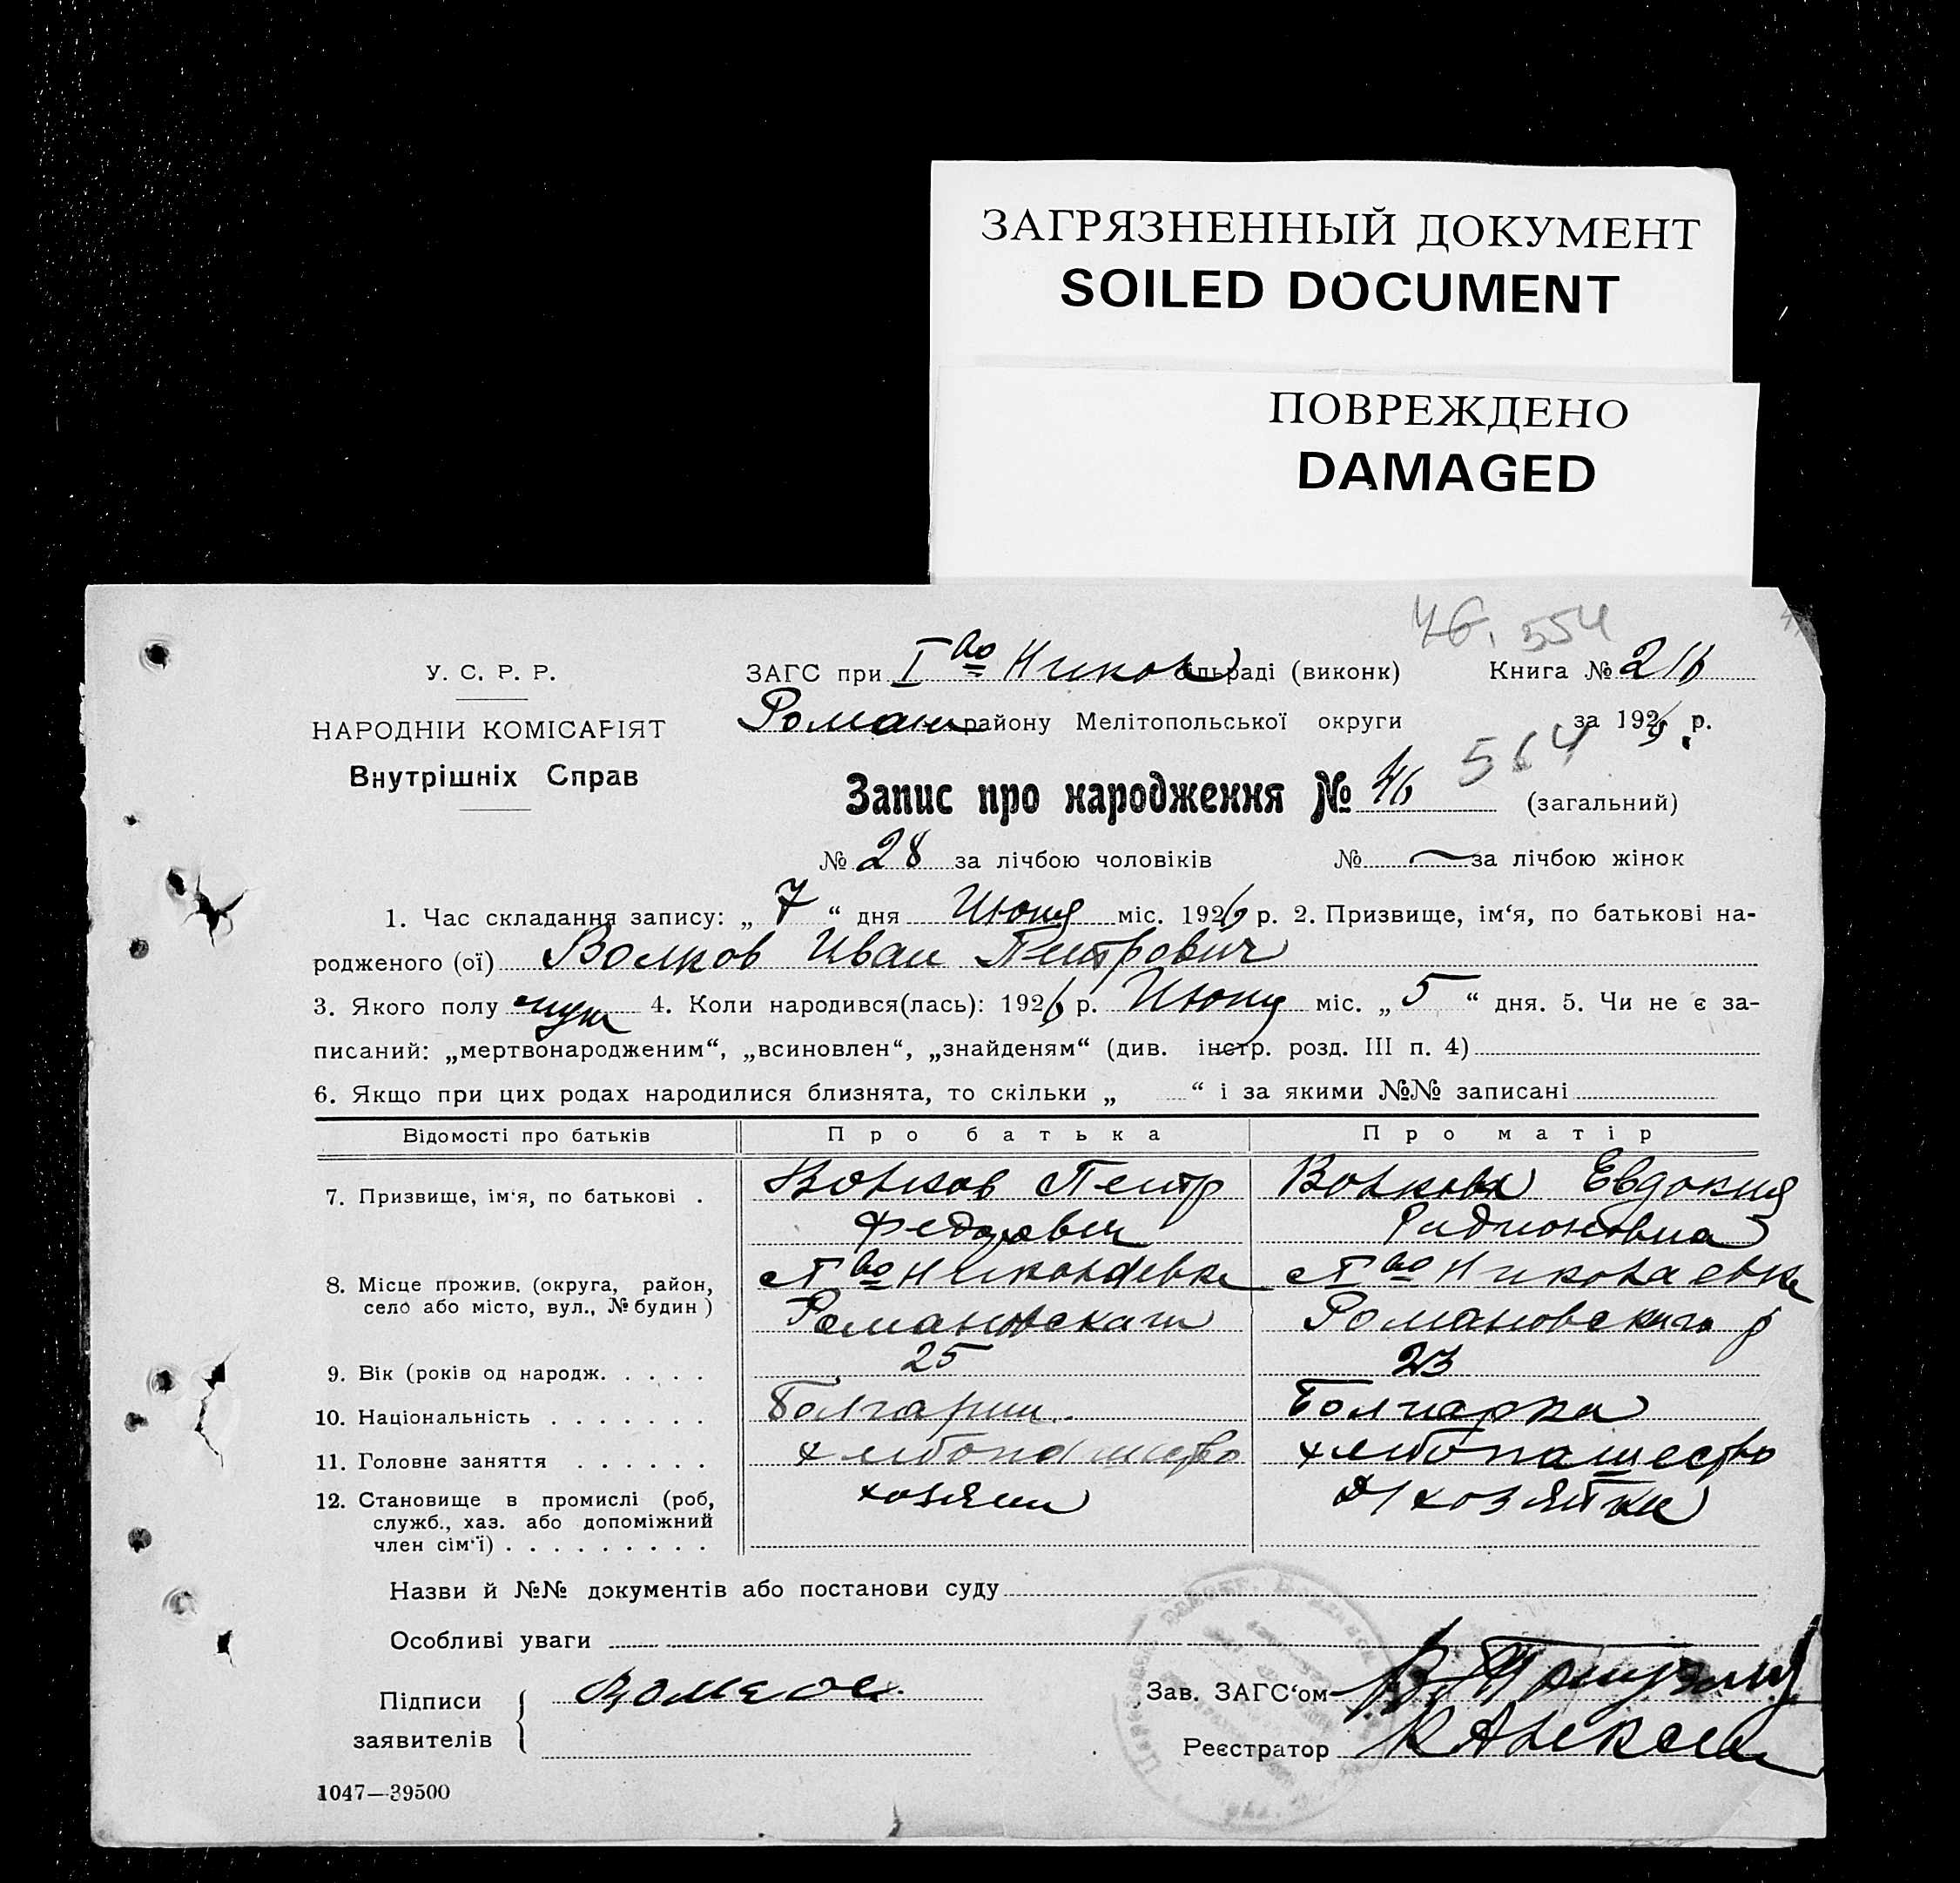 ЗАГРЯЗНЕННЫЙ ДОКУМЕНТ
SOILED DOCUMENT
ПОВРЕЖДЕНО
DAMAGED
46. 554
У. С. Р. Р.
ЗАГС при Iво Никол сільраді (виконк) Книга № 216
НАРОДНІЙ КОМІСАРІЯТ
Внутрішніх Справ
Роман району Мелітопольської округи за 1926 р.
564
Запис про народження № 46 (загальний)
№ 28 за лічбою чоловіків № — за лічбою жінок
1. Час складання запису: „ 7 “ дня Июня міс. 1926 р. 2. Призвище, ім‘я, по батькові на-
родженого (ої) Волков Иван Петрович
3. Якого полу муж 4. Коли народився(лась): 1926 р. Июня міс. „ 5 “ дня. 5. Чи не є за-
писаний: „мертвонародженим“, „всиновлен“, „знайденям“ (див. інстр. розд. III п. 4)
6. Якщо при цих родах народилися близнята, то скільки „ “ і за якими №№ записані
Відомості про батьків Про батька Про матір
7. Призвище, ім‘я, по батькові . Волков Петр Волкова Евдокия
Федорович Радионовна
8. Місце прожив. (округа, район, село або місто, вул., № будин) с Iво Николаевка с Iво Николаевка
Романовскаго Романовскаго р
9. Вік (років од народж. . . . . 25 23
10. Національність . . . . . . . Болгарин Болгарка
11. Головне заняття . . . . . . хлебопашество хлебопашество
12. Становище в промислі (роб, хозяин д/хозяйка
служб., хаз. або допоміжний
член сім‘ї) . . . . . . . . .
Назви й №№ документів або постанови суду
Особливі уваги
Підписи
заявителів
Зав. ЗАГС‘ом
Реєстратор
1047—39500